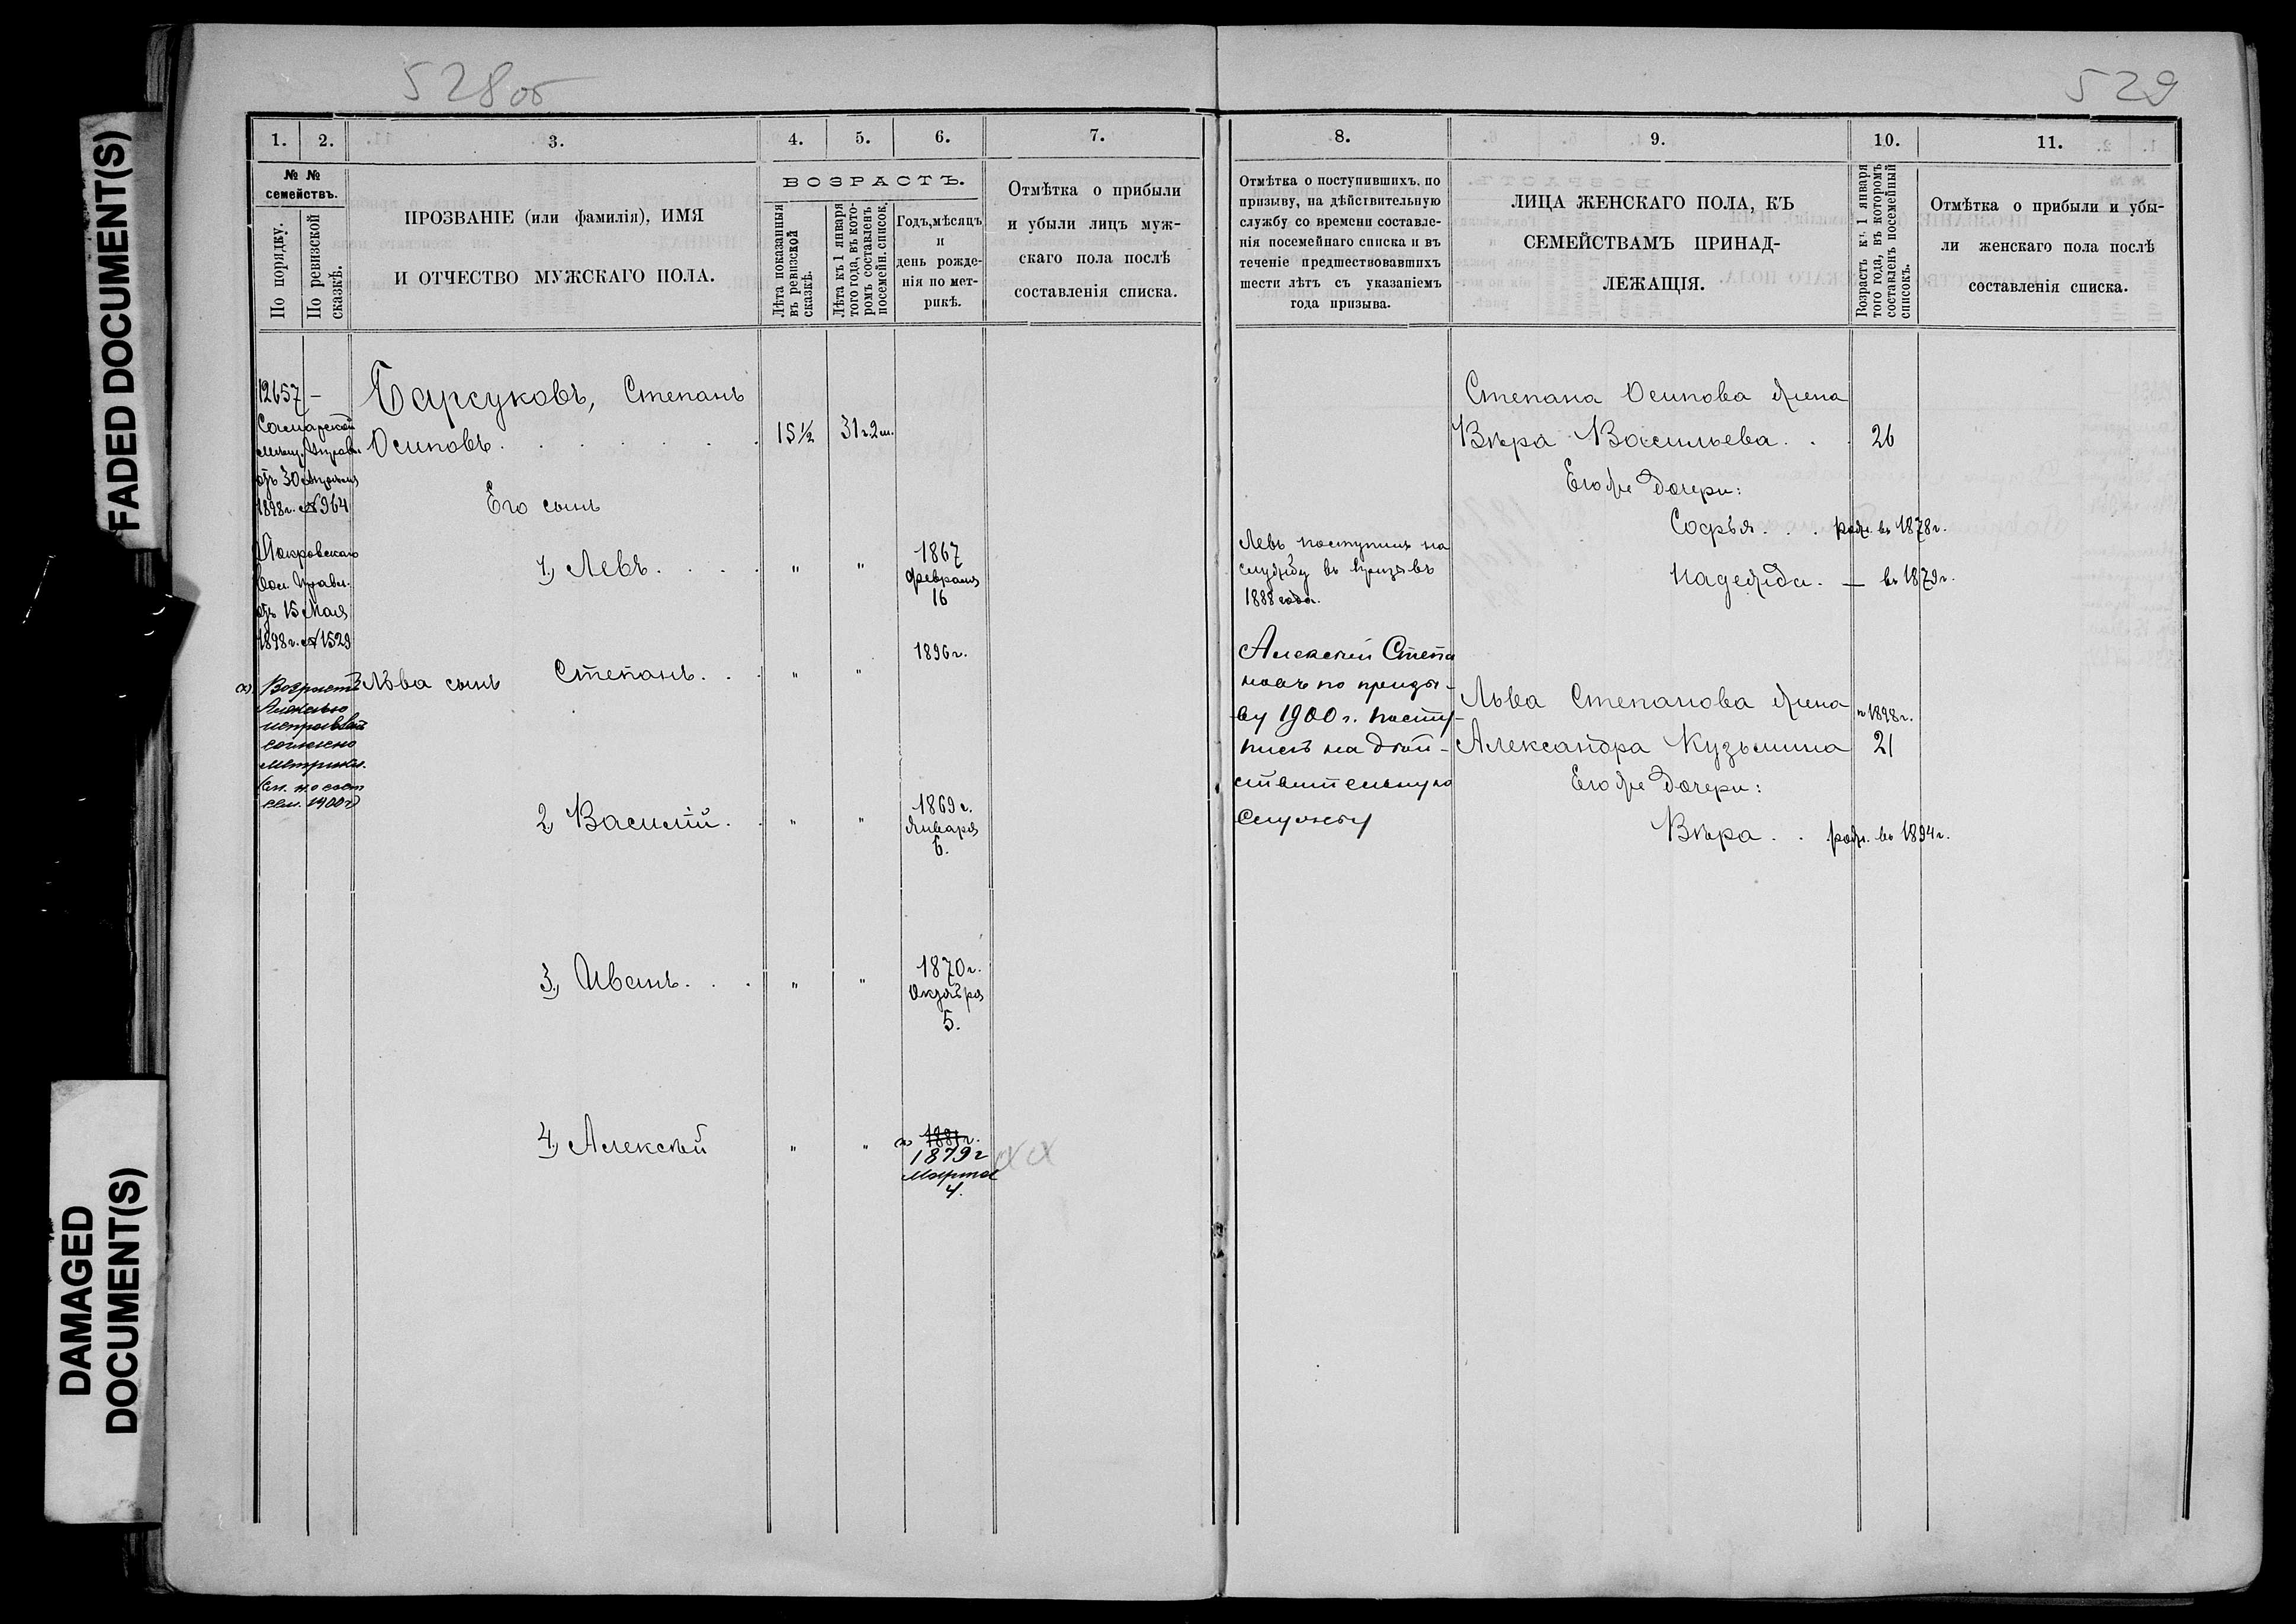 FADED DOCUMENT(S)
DAMAGED
DOCUMENT(S)
528 об
1. 2. 3. 4. 5. 6. 7.
№ №
семействъ.
По порядку.
По ревизской
сказкѣ.
ПРОЗВАНІЕ (или фамилія), ИМЯ
И ОТЧЕСТВО МУЖСКАГО ПОЛА.
ВОЗРАСТЪ.
Лѣта показанныя
въ ревизской
сказкѣ.
Лѣта къ 1 января
того года, въ кото-
ромъ составленъ
посемейн. список.
Годъ, мѣсяцъ
и
день рожде-
нія по мет-
рикѣ.
Отмѣтка о прибыли
и убыли лицъ муж-
скаго пола послѣ
составленія списка.
12657 –
Самарской
мѣщ. Управы
отъ 30 Апрѣля
1898 г. № 964
Покровскаго
Вол. Правл.
отъ 15 Мая
1898 г. № 1529
х) Возрастъ
Алексѣю
исправленъ
согласно
метрики.
1900 г.
Барсуковъ, Степанъ
Осиповъ. 15½ 31 г. 2 м.
Его сынъ
1, Левъ. . . . " "
1867
Февраля
16
Льва сынъ Степанъ. . . " " 1896 г.
2, Василій. . " "
1869 г.
Января
6.
3, Иванъ. . . " "
1870 г.
Октября
5.
4, Алексѣй " "
х) 1881 г.
1879 г
Марта
4.
529
8. 9. 10. 11.
Отмѣтка о поступившихъ, по
призыву, на дѣйствительную
службу со времени составле-
нія посемейнаго списка и въ
теченіе предшествовавшихъ
шести лѣтъ съ указаніемъ
года призыва.
ЛИЦА ЖЕНСКАГО ПОЛА, КЪ
СЕМЕЙСТВАМЪ ПРИНАД-
ЛЕЖАЩІЯ.
Возрастъ къ 1 января
того года, въ которомъ
составленъ посемейный
списокъ.
Отмѣтка о прибыли и убы-
ли женскаго пола послѣ
составленія списка.
Левъ поступилъ на
службу въ призывъ
1888 года.
Алексѣй Степа
новъ по призы-
ву 1900 г. посту-
пилъ на дѣй-
ствительную
службу
Степана Осипова жена
Вѣра Васильева. . . 26
Его же дочери:
Софья. . . рожд. въ 1878 г.
Надежда. — въ 1879 г.
Льва Степанова жена
к 1898 г.
Александра Кузьмина 21
Его же дочери:
Вѣра. . рожд. въ 1894 г.